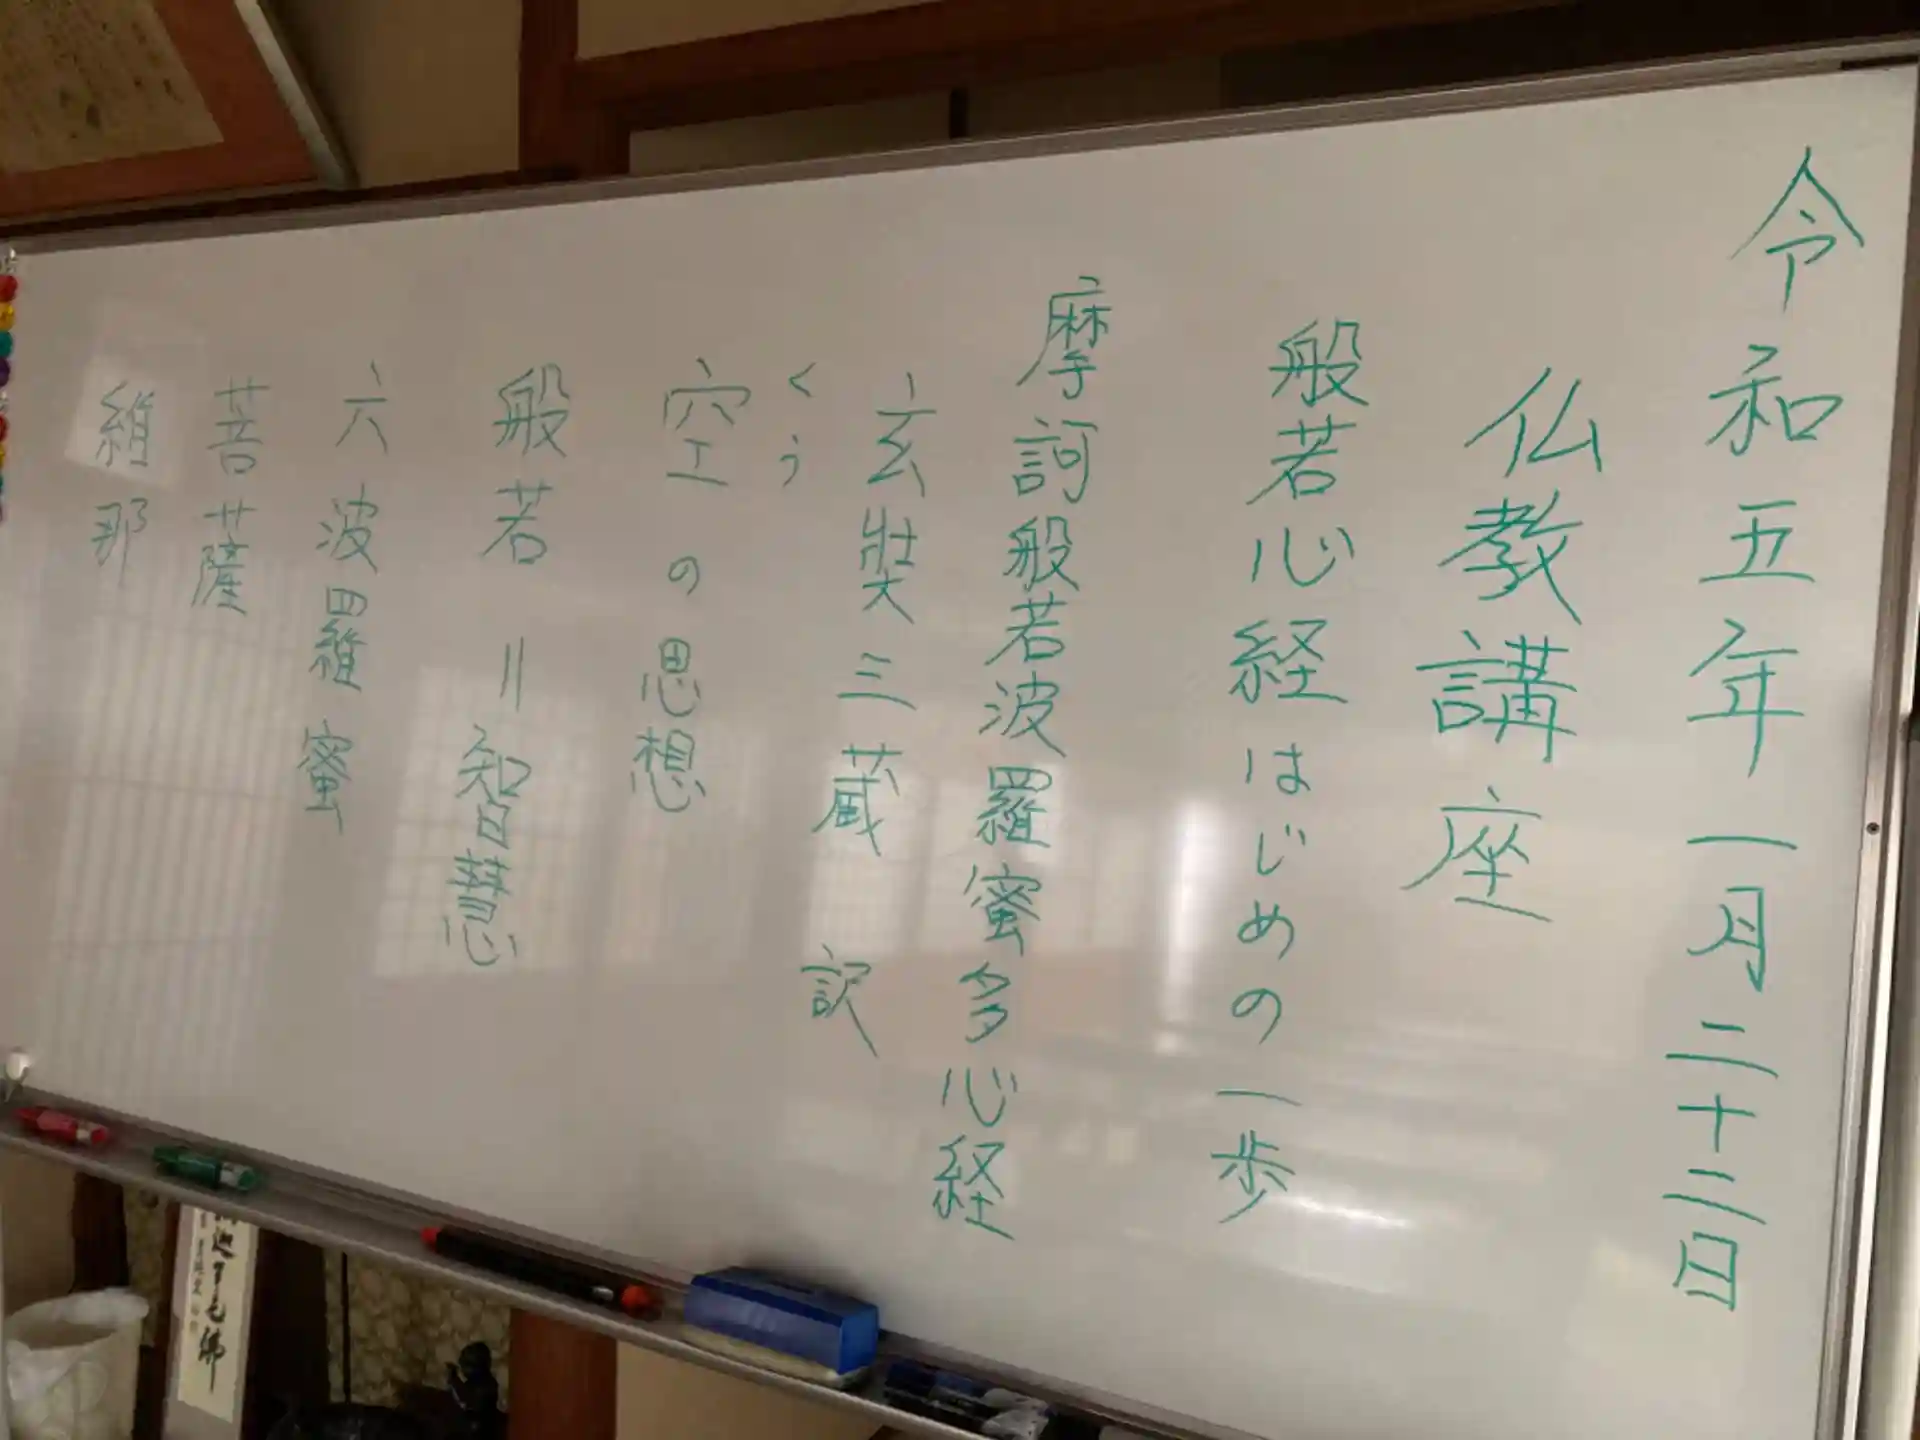 令和五年一月二十二日
仏教講座
般若心経はじめの一歩
摩訶般若波羅蜜多心経
玄奘三蔵 訳
くう
空の思想
般若 = 智慧
六波羅蜜
菩薩
維那